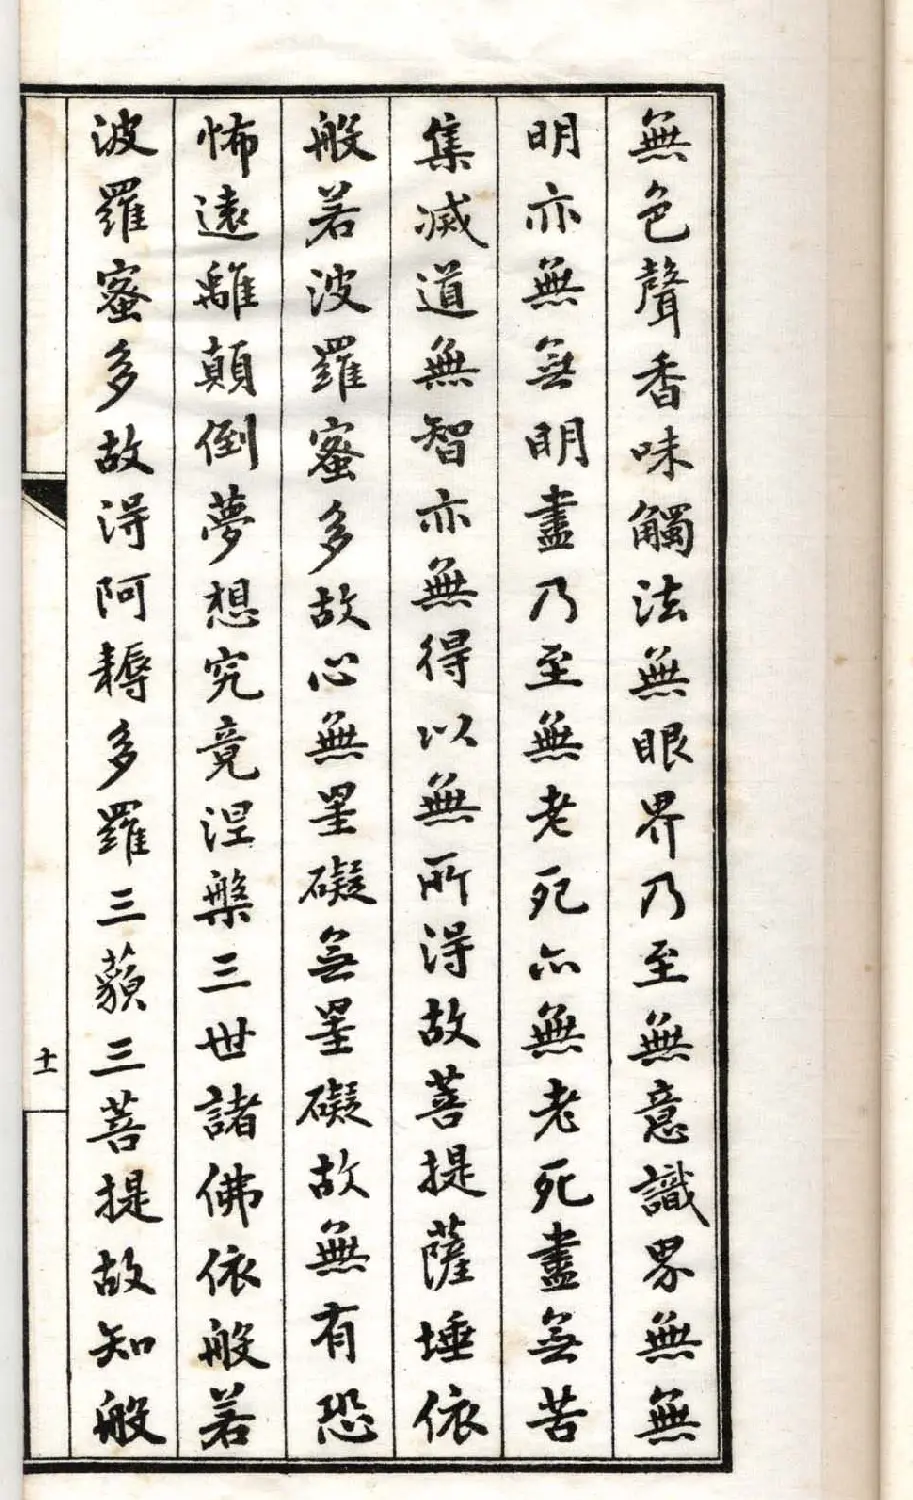 無色聲香味觸法無眼界乃至無意識界無無
明亦無無明盡乃至無老死亦無老死盡無苦
集滅道無智亦無得以無所得故菩提薩埵依
般若波羅蜜多故心無罣礙無罣礙故無有恐
怖遠離顛倒夢想究竟涅槃三世諸佛依般若
波羅蜜多故得阿耨多羅三藐三菩提故知般
十一